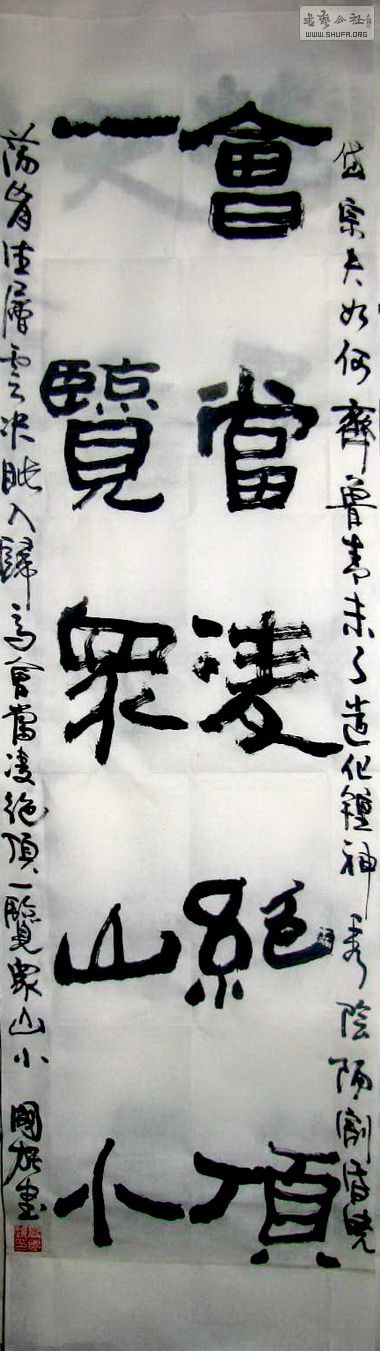 書藝公社
WWW.SHUFA.ORG
岱宗夫如何齊魯青未了造化鍾神秀陰陽割昏曉
會當凌絕頂
一覽眾山小
蕩胷生層雲決眦入歸鳥會當凌絕頂一覽眾山小 國 書